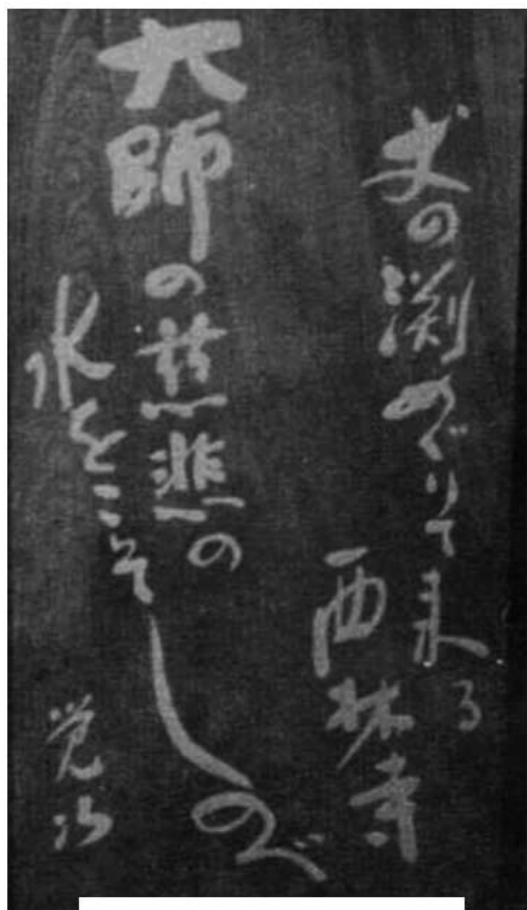 丈の渕めぐりて来る
西林寺
大師の慈悲の
水をこそしのべ
覚